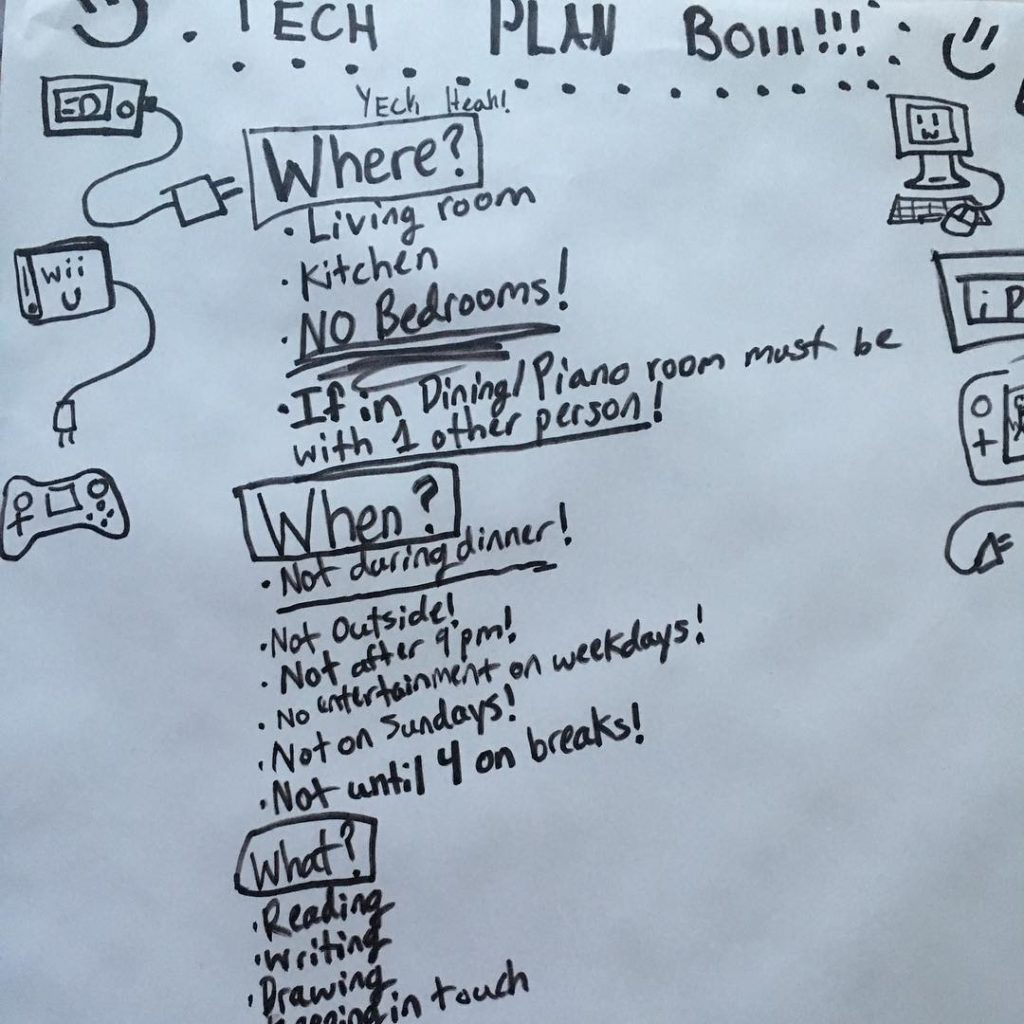 TECH PLAN BOIII!!!
YEch Heah!
Where?
• Living room
• Kitchen
• NO Bedrooms!
• If in Dining/Piano room must be
with 1 other person!
When?
• Not during dinner!
• Not Outside!
• Not after 9 pm!
• No entertainment on weekdays!
• Not on Sundays!
• Not until 4 on breaks!
What?
• Reading
• Writing
• Drawing
• Keeping in touch
wii
U
iP